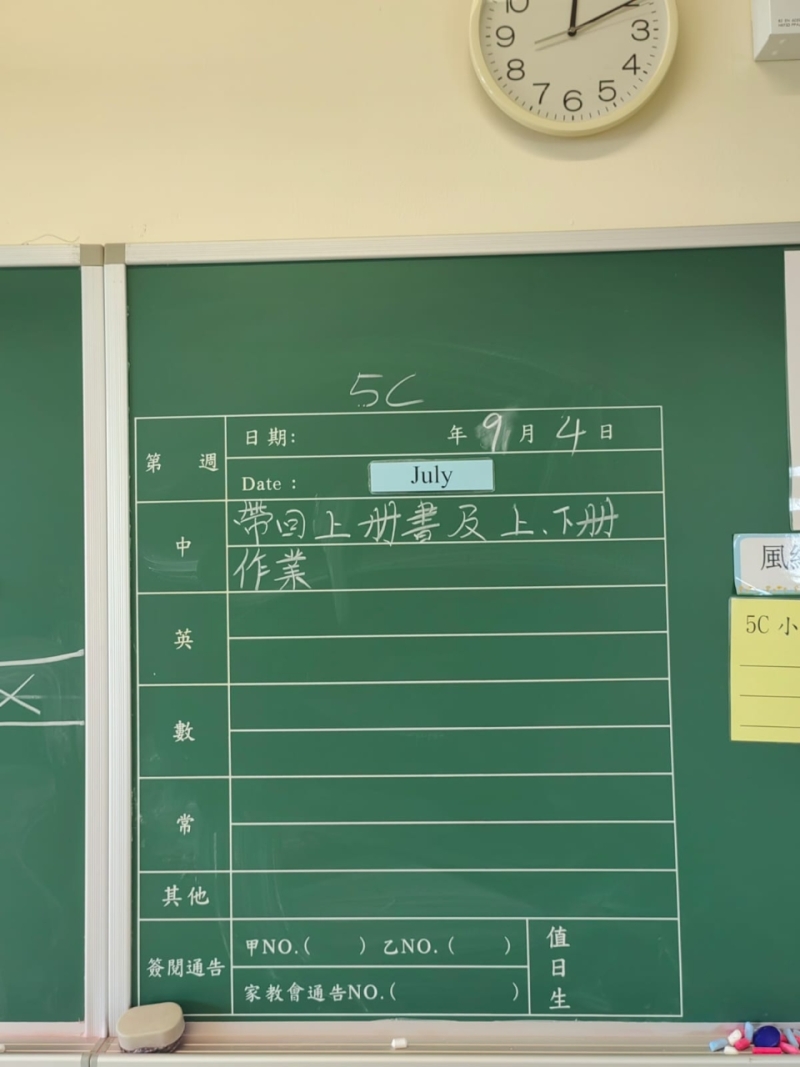 10
9
3
8
4
7
6
5
5C
第 週
日期: 年 9 月 4 日
Date : July
中
帶回上册書及上、下册
作業
英
數
常
其他
簽閱通告
甲NO.( ) 乙NO.( )
家教會通告NO.( )
值日生
風
5C 小